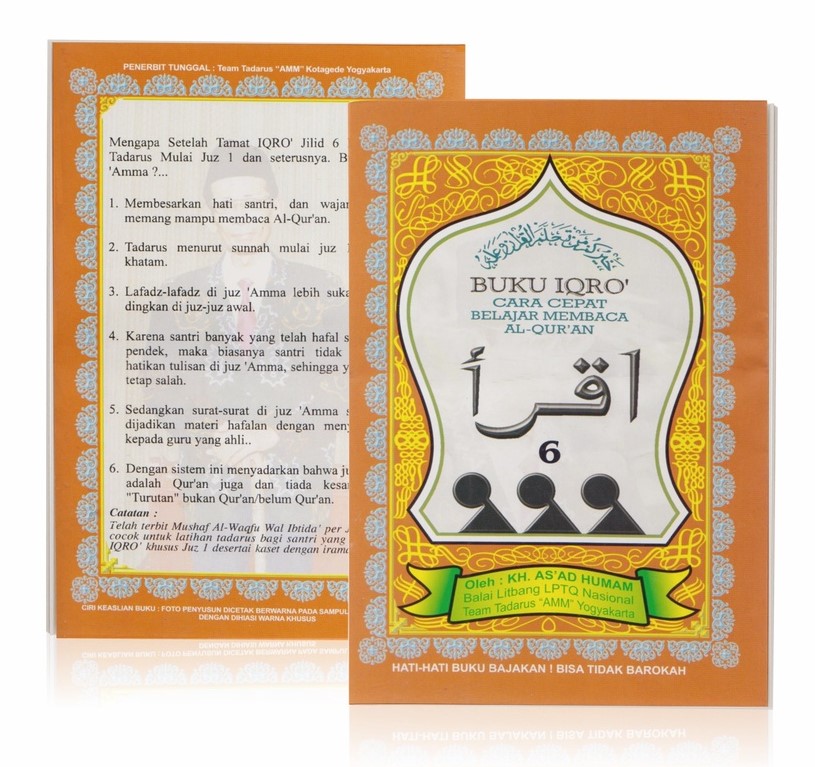 PENERBIT TUNGGAL : Team Tadarus "AMM" Kotagede Yogyakarta
Mengapa Setelah Tamat IQRO' Jilid 6
Tadarus Mulai Juz 1 dan seterusnya. B
'Amma ?...
1. Membesarkan hati santri, dan wajar
memang mampu membaca Al-Qur'an.
2. Tadarus menurut sunnah mulai juz
khatam.
3. Lafadz-lafadz di juz 'Amma lebih suka
dingkan di juz-juz awal.
4. Karena santri banyak yang telah hafal s
pendek, maka biasanya santri tidak
hatikan tulisan di juz 'Amma, sehingga y
tetap salah.
5. Sedangkan surat-surat di juz 'Amma s
dijadikan materi hafalan dengan meny
kepada guru yang ahli..
6. Dengan sistem ini menyadarkan bahwa ju
adalah Qur'an juga dan tiada kesa
"Turutan" bukan Qur'an/belum Qur'an.
Catatan :
Telah terbit Mushaf Al-Waqfu Wal Ibtida' per J
cocok untuk latihan tadarus bagi santri yang
IQRO' khusus Juz 1 desertai kaset dengan irama
CIRI KEASLIAN BUKU : FOTO PENYUSUN DICETAK BERWARNA PADA SAMPUL
DENGAN DIHASI WARNA KHUSUS
خيركم من تعلم القرآن وعلمه
BUKU IQRO'
CARA CEPAT
BELAJAR MEMBACA
AL-QUR'AN
اقرأ
6
Oleh : KH. AS'AD HUMAM
Balai Litbang LPTQ Nasional
Team Tadarus "AMM" Yogyakarta
HATI-HATI BUKU BAJAKAN ! BISA TIDAK BAROKAH